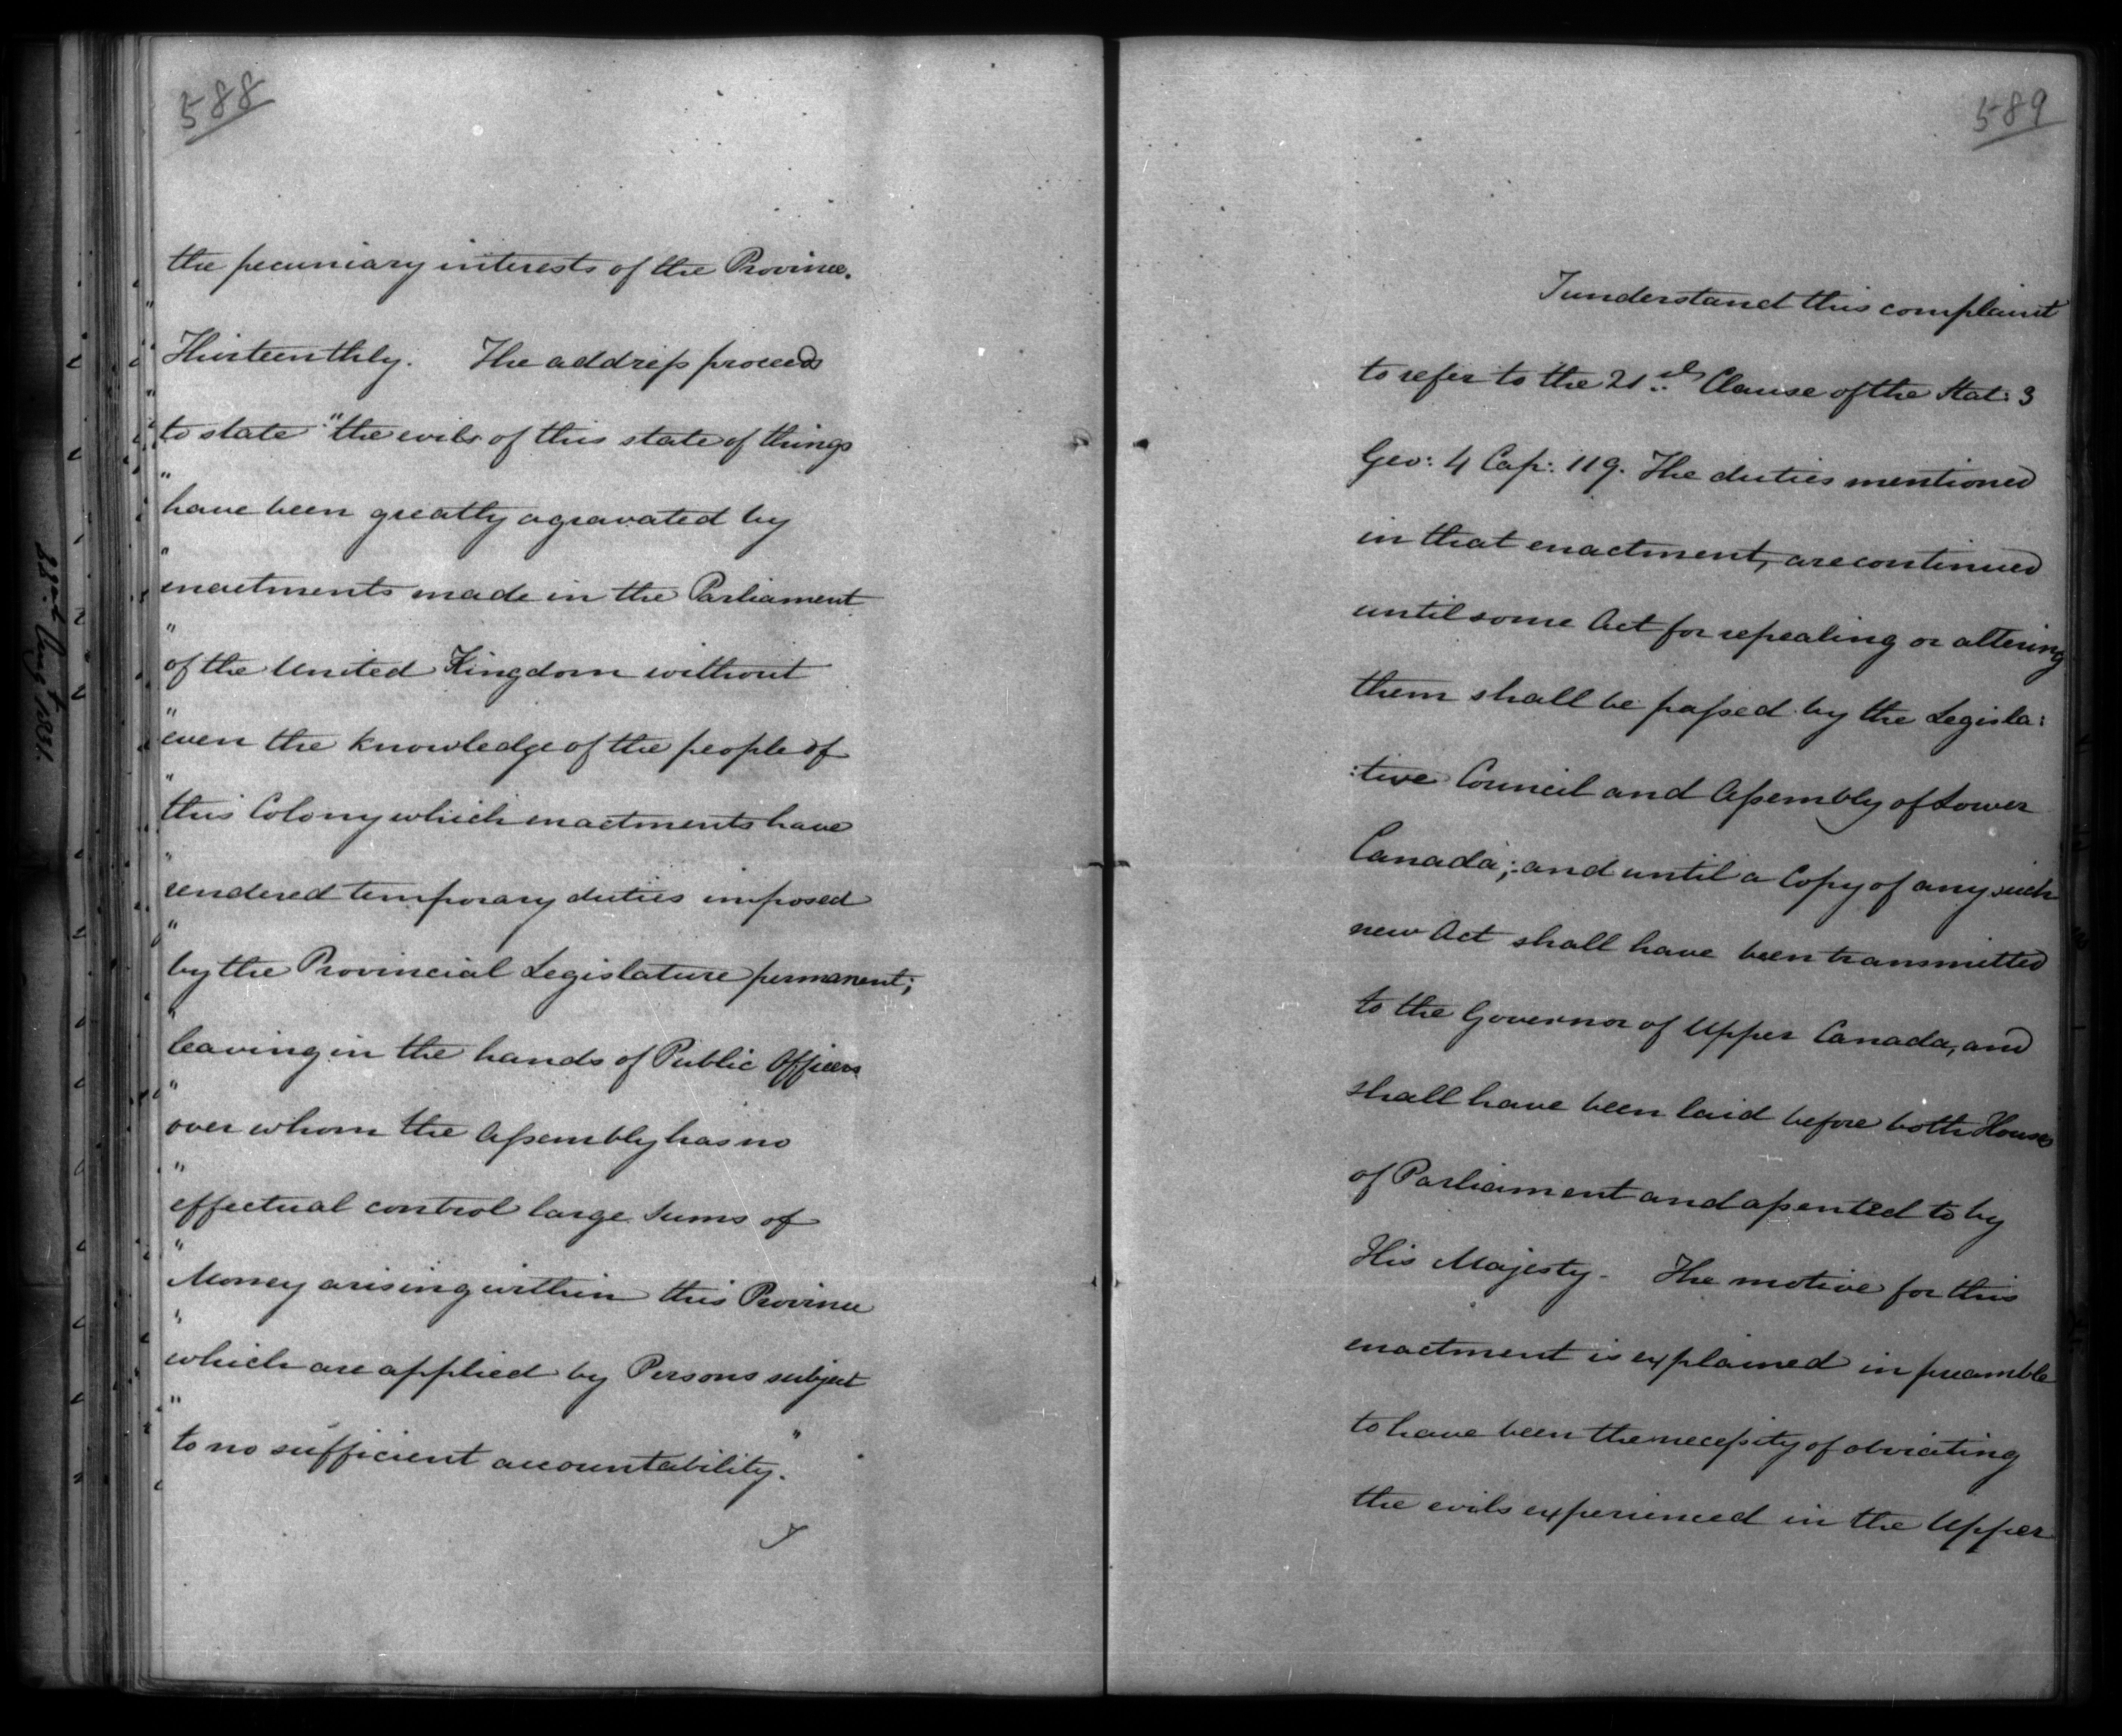 588
the pecuniary interests of the Province.
"
Thirteenthly. The address proceeds
"
to state "the evils of this state of things
"
have been greatly agravated by
"
enactments made in the Parliament
"
of the United Kingdom without
"
even the knowledge of the people of
"
this Colony which enactments have
"
rendered temporary duties imposed
"
by the Provincial Legislature permanent;
"
leaving in the hands of Public Officers
"
over whom the Assembly has no
"
effectual control large Sums of
"
Money arising within this Province
"
which are applied by Persons subject
"
to no sufficient accountability."
I
589
I understand this complaint
to refer to the 21st Clause of the Stat: 3
Geo: 4 Cap: 119. The duties mentioned
in that enactment, are continued
until some Act for repealing or altering
them shall be passed by the Legisla:
:tive Council and Assembly of Lower
Canada; and until a Copy of any such
new Act shall have been transmitted
to the Governor of Upper Canada, and
shall have been laid before both Houses
of Parliament and assented to by
His Majesty. The motive for this
enactment is explained in preamble
to have been the necessity of obviating
the evils experienced in the Upper